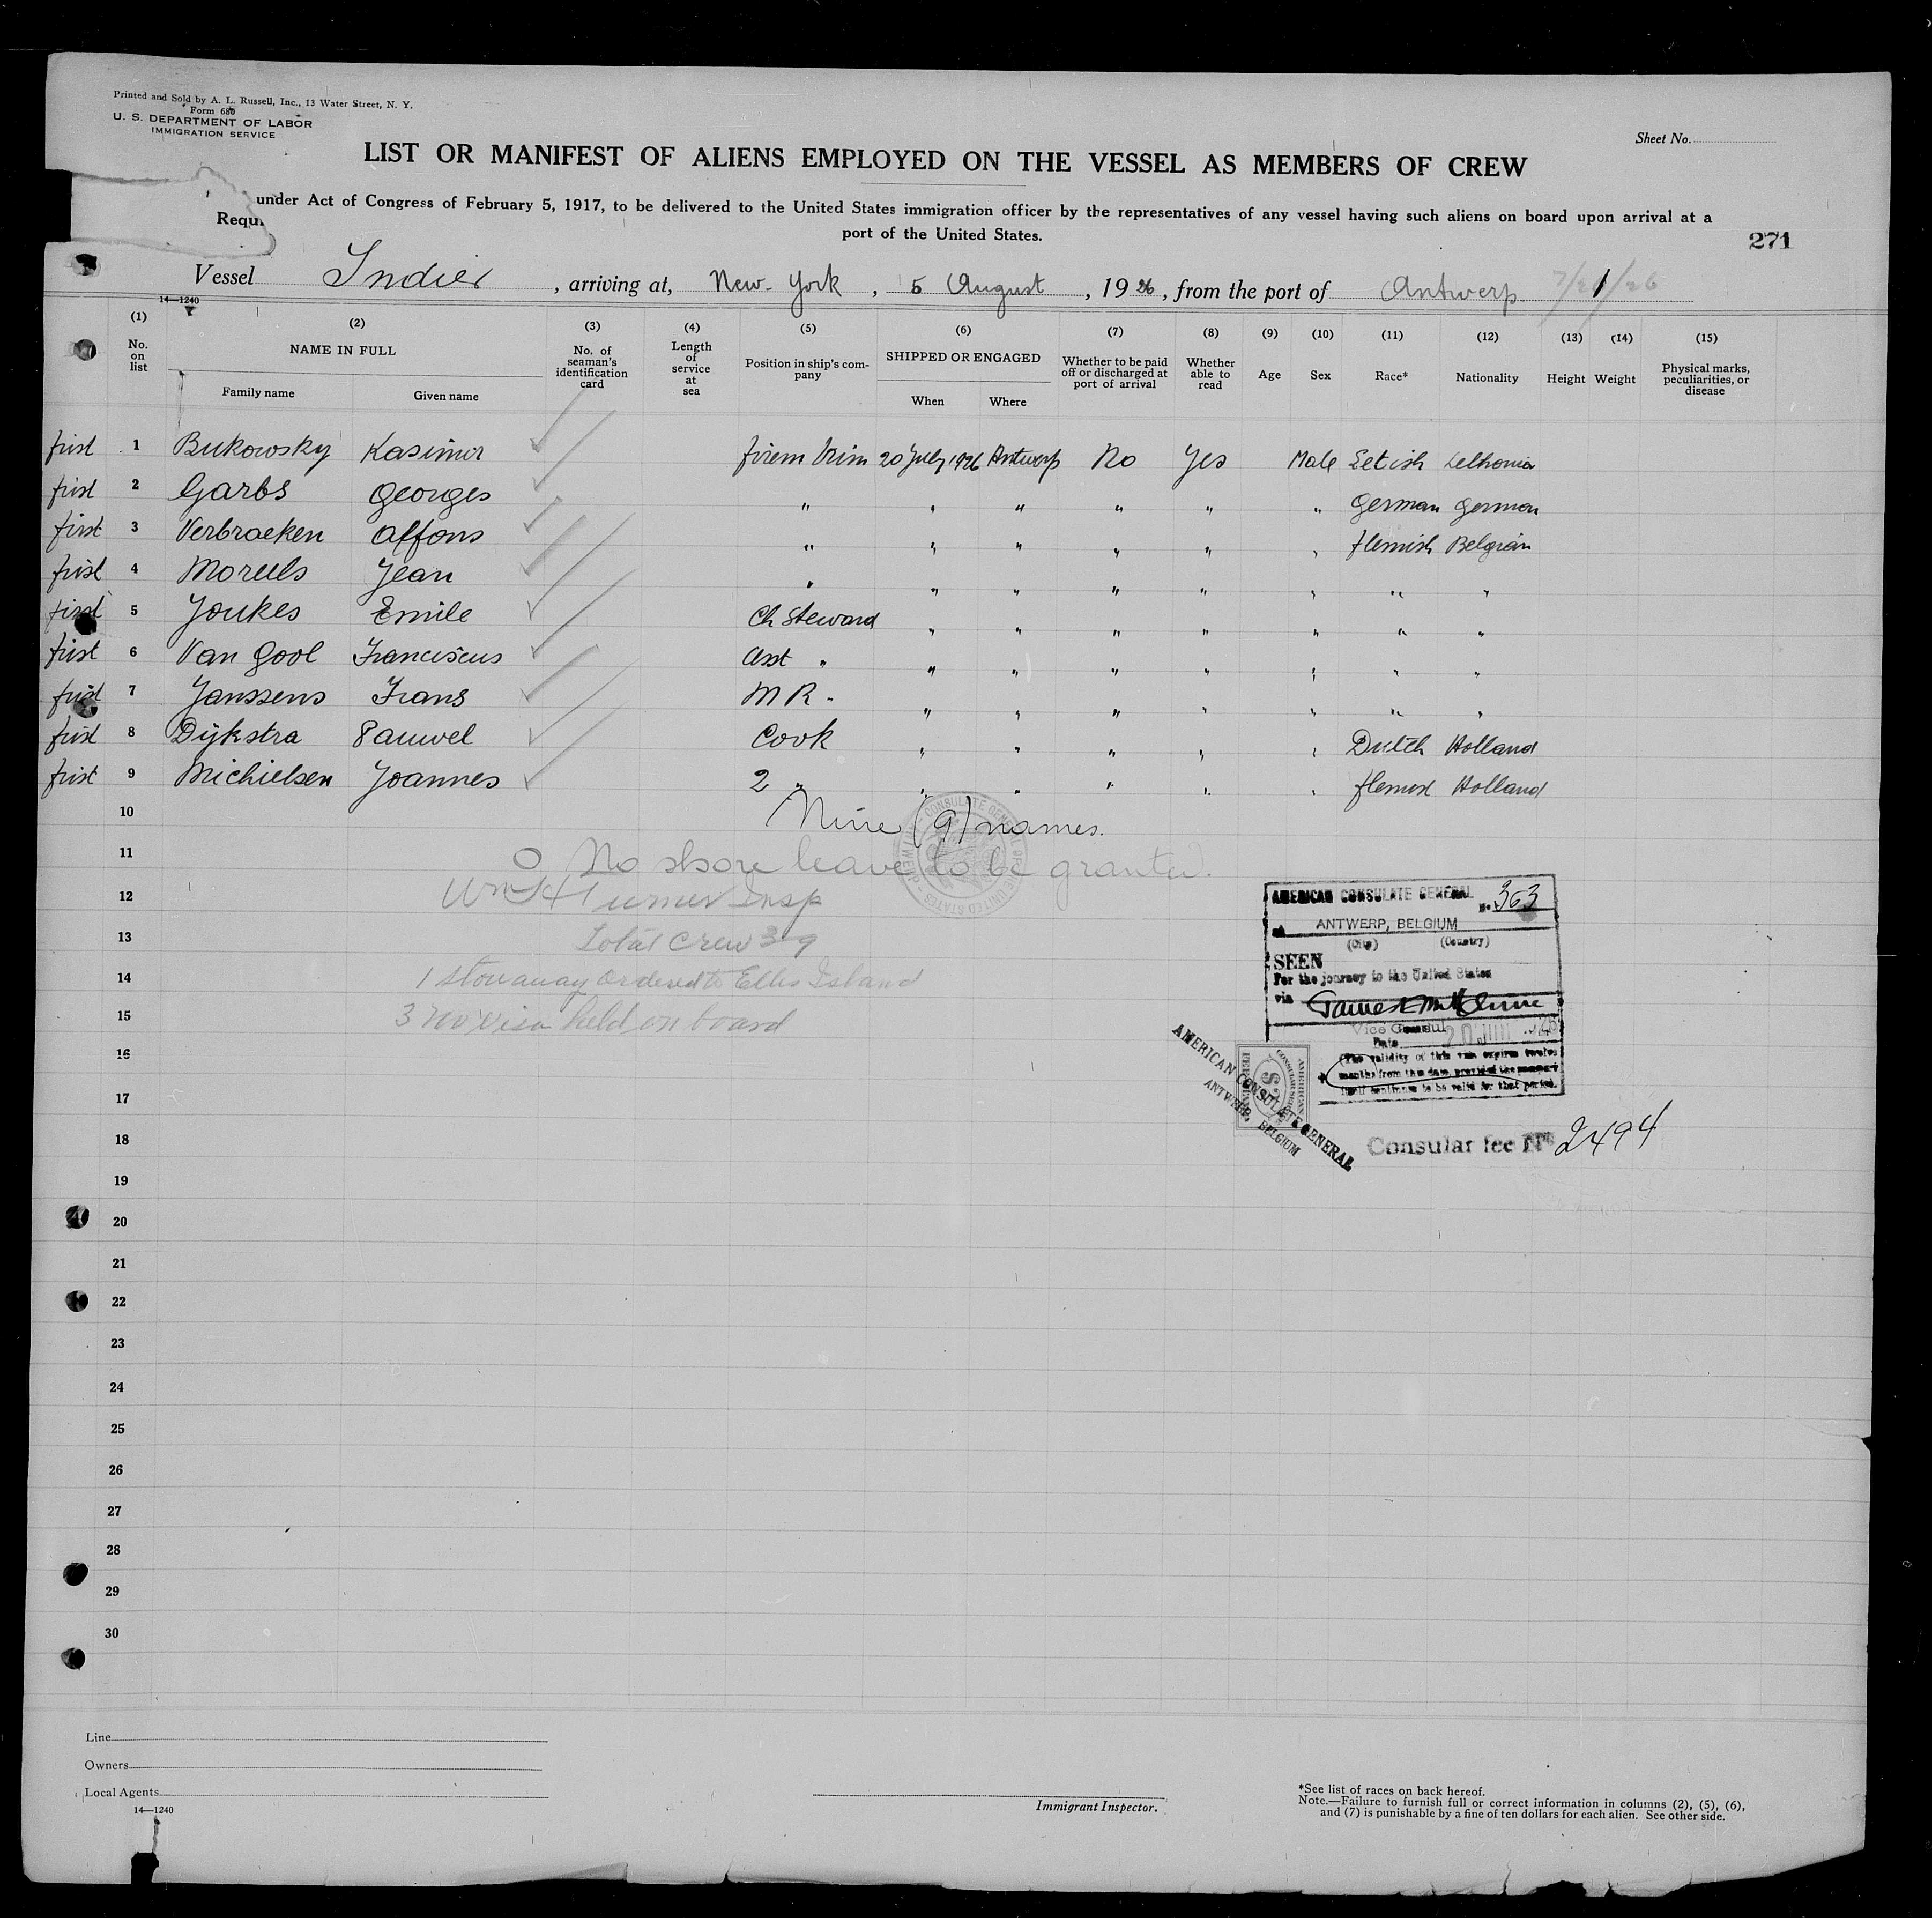 Printed and Sold by A. L. Russell, Inc., 13 Water Street, N. Y.
Form 680
U. S. DEPARTMENT OF LABOR
IMMIGRATION SERVICE
Sheet No.
LIST OR MANIFEST OF ALIENS EMPLOYED ON THE VESSEL AS MEMBERS OF CREW
under Act of Congress of February 5, 1917, to be delivered to the United States immigration officer by the representatives of any vessel having such aliens on board upon arrival at a
port of the United States.
271
Vessel Indier, arriving at, New-York, 5 August, 1926, from the port of Antwerp 7/21/26
14—1240
(1) (2) (3) (4) (5) (6) (7) (8) (9) (10) (11) (12) (13) (14) (15)
No. on list NAME IN FULL No. of seaman's identification card Length of service at sea Position in ship's company SHIPPED OR ENGAGED Whether to be paid off or discharged at port of arrival Whether able to read Age Sex Race* Nationality Height Weight Physical marks, peculiarities, or disease
Family name Given name When Where
first 1 Bukowsky Kasimir firem trim 20 July 1926 Antwerp No Yes Male Letish
first 2 Garbs Georges " " " " " " German German
first 3 Verbraeken Alfons " " " " " " flemish Belgian
first 4 Moreels Jean " " " " " " " "
first 5 Joukes Emile Ch Steward " " " " " " "
first 6 Van Gool Franciscus Asst " " " " " " " "
first 7 Janssens Frans M R " " " " " " " "
first 8 Dijkstra Pauwel Cook " " " " " Dutch Holland
first 9 Michielsen Joannes 2 " " " " " " Holland
10 Nine (9) names.
11 No shore leave to be granted.
12 Wm H Turner Insp
13 Total Crew 39
14 1 stowaway ordered to Ellis Island
15 3 no visa held on board
16
17
18
19
20
21
22
23
24
25
26
27
28
29
30
AMERICAN CONSULATE GENERAL No. 363
at ANTWERP, BELGIUM
(City) (Country)
SEEN
For the journey to the United States
via
Vice Consul
Date
The validity of this visa expires twelve
months from this date, provided the passport
itself continues to be valid for that period.
AMERICAN CONSULATE GENERAL
ANTWERP, BELGIUM
Consular fee No 2494
Line
Owners
Local Agents
14—1240
Immigrant Inspector.
*See list of races on back hereof.
Note.—Failure to furnish full or correct information in columns (2), (5), (6),
and (7) is punishable by a fine of ten dollars for each alien. See other side.